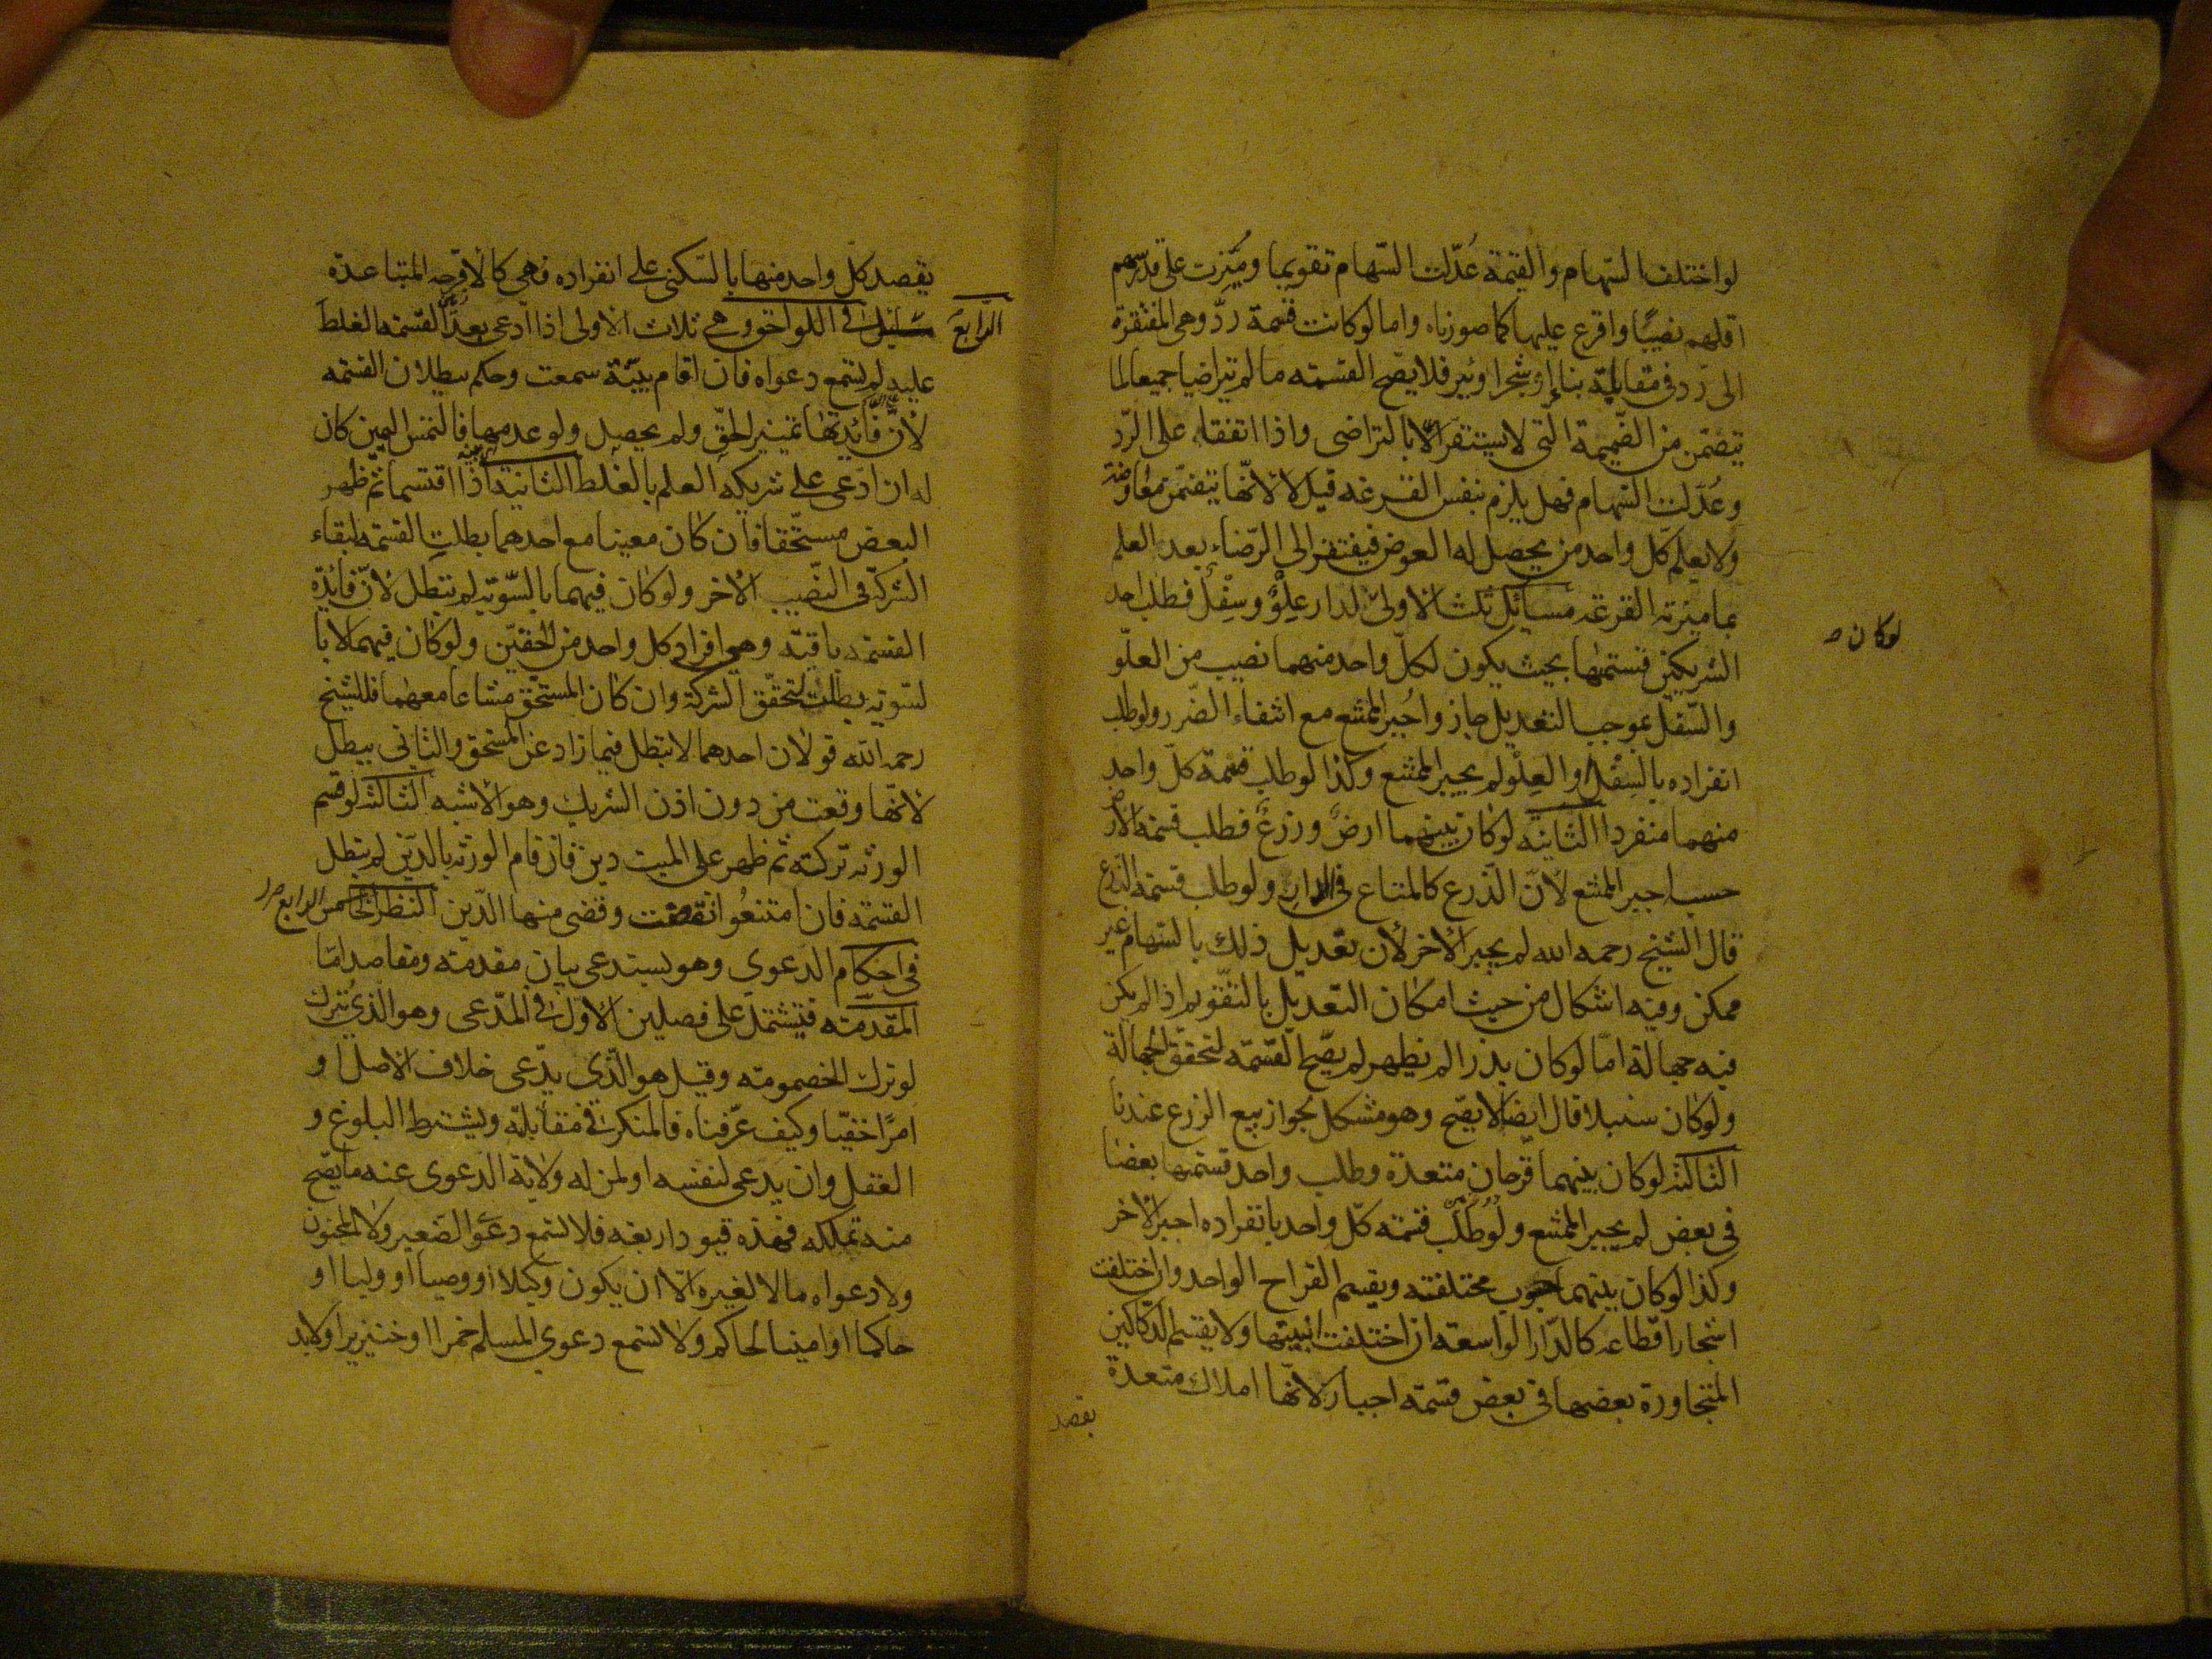 لو اختلف السّهام والقيمة عُدّلت السّهام تقويما ومُيّزت على قدر سهم
اقلهم نصيبًا واقرع عليها كما صورناه واما لو كانت قسمة ردّ وهى المفتقرة
الى رَدّ فى مقابلة بناء او شجرا وبير فلا يصّح القسمه ما لم يتراضيا جميعا لما
يتضمّن من الضّميمة الّتى لا يستقر الّا بالتراضى واذا اتفقا على الرّد
وعُدّلت السّهام فهل يلزم بنفس القرعه قيل لا لانّها يتضمّن معاوضة
ولا يعلم كلّ واحد من يحصل له العوض فيفتقر الى الرّضاء بعد العلم
بما ميزته القرعه مسائل ثلث الاولى لدار عِلوٌّ وسِفْلٌ فطلب احد
الشريكين قسمتها بحيث يكون لكلّ واحد منهما نصيب من العلّو
والسّفل بموجب التعديل جاز واُجبر الممتنع مع انتفاء الضّرر ولو طلب
انفراده بالسِفْل او العِلو لم يجبر الممتنع وكذا لو طلب قسمة كلّ واحد
منهما منفردا الثانيّه لو كان بينهما ارضٌ وزرعٌ فطلب قسمة الارض
حسب اجبر الممتنع لأنّ الزّرع كالمتاع فى الدار ولو طلب قسمة الزّرع
قال الشيخ رحمه الله لم يجبر الاخر لأن تعديل ذلك بالسّهام غير
ممكن وفيه اشكال من حيث امكان التعديل بالتقويم اذا لم يكن
فيه جهالة امّا لو كان بذرا لم يظهر لم يصّح القسّمه لتحقق الجهالة
ولو كان سنبلا قال ايضًا لا يصّح وهو مشكل لجواز بيع الزرع عندنا
الثالثة لو كان بينهما قرحان متعدة وطلب واحد قسمتها بعضا
فى بعض لم يجبر الممتنع ولو طلب قسمته كلّ واحد بانفراده اجبر الاخر
وكذا لو كان بينهما حبوب مختلفته ويقسم القراح الواحد وان اختلفت
اشجار اقطاعه كالدّار الواسعته ان اختلفت ابنيتها ولا يقسم الدّكاكين
المتجاورة بعضها فى بعض قسمته اجبار لانّها املاك متعدة
يقصد
لو كان ص
يقصد كلّ واحد منها بالسّكنى على انفراده فهى كالاقرحه المتباعدّة
الرابع
فى اللواحق وهى ثلاث الاولى اذا ادعى بعد القسمه الغلط
عليه لم يسمع دعواه فان اقام بيّنة سمعت وحكم ببطلان القسمه
لأنّ فائدتها تميز الحقّ ولم يحصل ولو عدمها فالتمس اليمين كان
له ان ادّعى على شريكه العلم بالغلط الثانيه اذا اقتسما ثم ظهر
البعض مستحّقا فان كان معينا مع احدهما بطلت القسمه لبقاء
الشركة فى النصّيب الاخر ولو كان فيهما بالسّويّه لم يبطل لأنّ فايدّة
القسمه باقيّه وهى افراد كل واحد من الحقين ولو كان فيهما لا با
لسّويّه بطلت لتحقّق الشركة وان كان المستحّق مشاعا معهما فللشيخ
رحمه الله قولان احدهما لا تبطل فيما زاد عن المستحق والثانى يبطل
لانّها وقعت من دون اذن الشريك وهو الاشبه الثالثه لو قسم
الورثه تركته ثم ظهر على الميت دين فان قام الورثه بالدّين لم يبطل
القسمّه فان امتنعُوا نقضت وقضى منها الدّين النظر الخامس الرابع ص
فى احكام الدعوى وهو يستدعى بيان مقدمّته ومقاصد امّا
المقدّمّته فتشتمل على فصلين الاوّل فى المدّعى وهو الذى يُترك
لو ترك الخصومته وقيل هو الّذى يدّعى خلاف الاصل او
امرًا خفيّا وكيف عرّفناه فالمنكر فى مقابلتّه ويشترط البلوغ و
العقل وان يدعى لنفسه او لمن له ولاية الدعوى عنه ما يصّح
منه تملكه فهذه قيود اربعه فلا تسمع دعوى الصّغير ولا المجنون
ولا دعواه مالا لغيره الّا ان يكون وكيلا او وصيا او وليا او
حاكما او امينا لحاكم ولا تسمع دعوى المسلم خمرا او خنزيرا ولابد